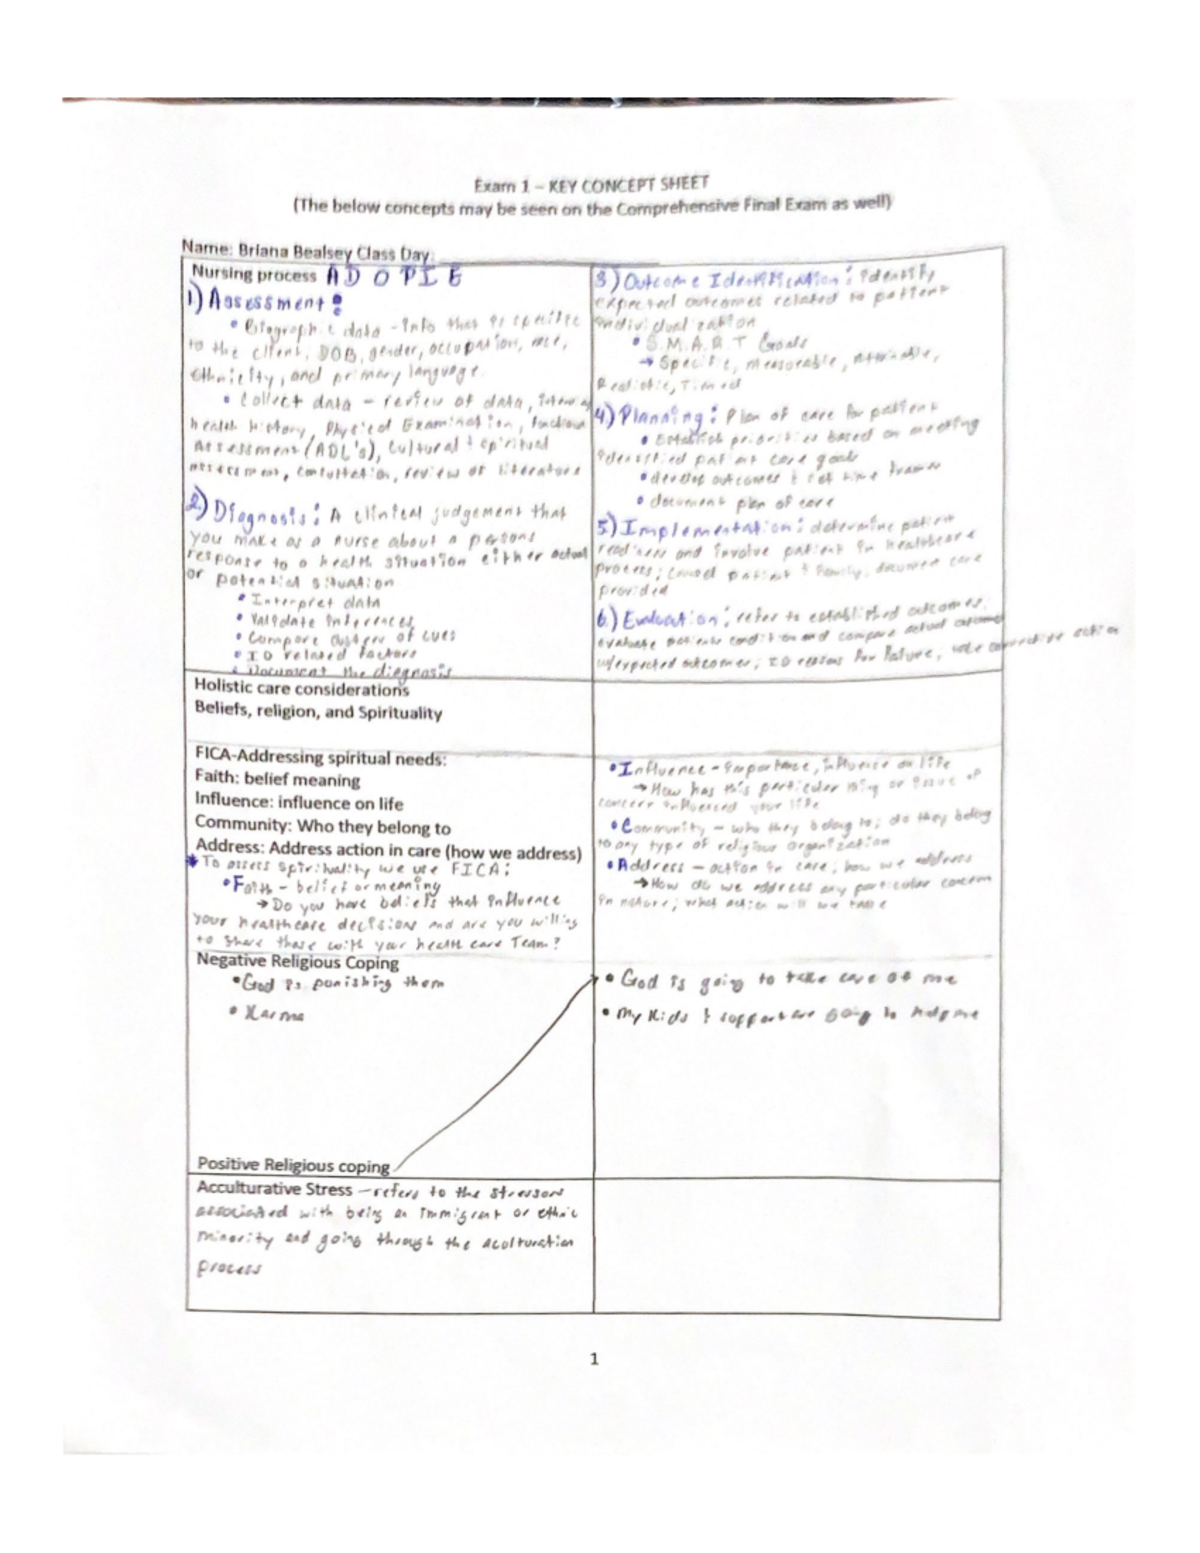 Exam 1 – KEY CONCEPT SHEET
(The below concepts may be seen on the Comprehensive Final Exam as well)
Name: Briana Bealsey Class Day:
Nursing process A D O P I E
1) Assessment:
• Biographic data - info that is specific
to the client, DOB, gender, occupation, race,
ethnicity, and primary language.
• Collect data - review of data, interview
health history, Physical Examination, functional
Assessment (ADL's), Cultural + spiritual
assessment, consultation, review of literature
2) Diagnosis: A clinical judgement that
you make as a nurse about a persons
response to a health situation either actual
or potential situation
• Interpret data
• Validate inferences
• Compare clusters of cues
• ID related factors
• Document the diagnosis
3) Outcome Identification: identify
expected outcomes related to patient
individualization
• S.M.A.R.T Goals
→ Specific, measurable, attainable,
Realistic, Timed
4) Planning: Plan of care for patient
• Establish priorities based on meeting
identified patient care goals
• develop outcomes & set time frames
• document plan of care
5) Implementation: determine patient
readiness and involve patient in healthcare
process; patient & family, document care
provided
6) Evaluation: refer to established outcomes,
evaluate patients condition and compare actual outcomes
w/expected outcomes; ID reasons for failure, corrective action
Holistic care considerations
Beliefs, religion, and Spirituality
FICA-Addressing spiritual needs:
Faith: belief meaning
Influence: influence on life
Community: Who they belong to
Address: Address action in care (how we address)
* To assess spirituality we use FICA:
• Faith - belief or meaning
→ Do you have beliefs that influence
your healthcare decisions and are you willing
to share those with your health care Team?
• Influence - importance, influence on life
→ How has this particular thing or issue of
concern influenced your life
• Community - who they belong to; do they belong
to any type of religious organization
• Address - action in care; how we address
→ How do we address any particular concern
in nature; what action will we take
Negative Religious Coping
• God is punishing them
• Karma
• God is going to take care of me
• My kids & support are going to help me
Positive Religious coping
Acculturative Stress - refers to the stressors
associated with being an immigrant or ethic
minority and going through the acolturation
process
1